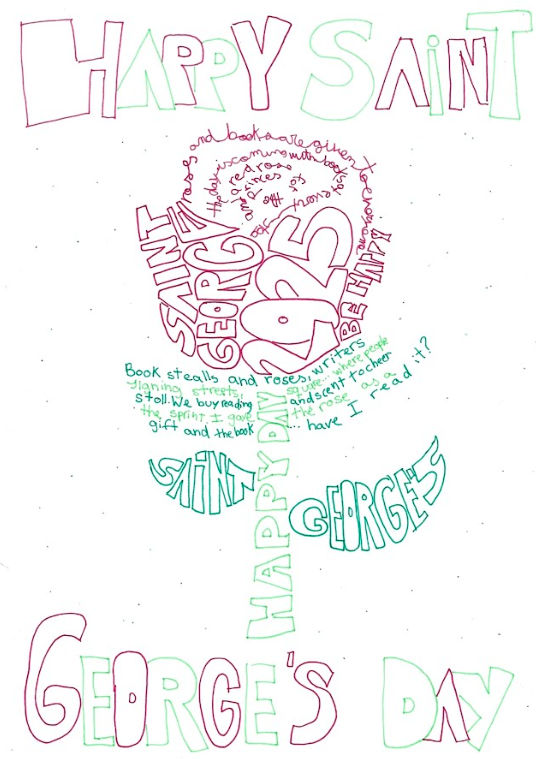 HAPPY SAINT
roses and books are given to everyone
the day is coming with books
a red rose
and princes
SAINT
GEORGE'S
2025
BE HAPPY
Book stealls and roses, writers
flaning streets, square... where people
stoll. We buy reading and scent to cheer
the sprint I gave the rose as a
gift and the book ... have I read it?
HAPPY DAY
SAINT
GEORGE'S
GEORGE'S DAY